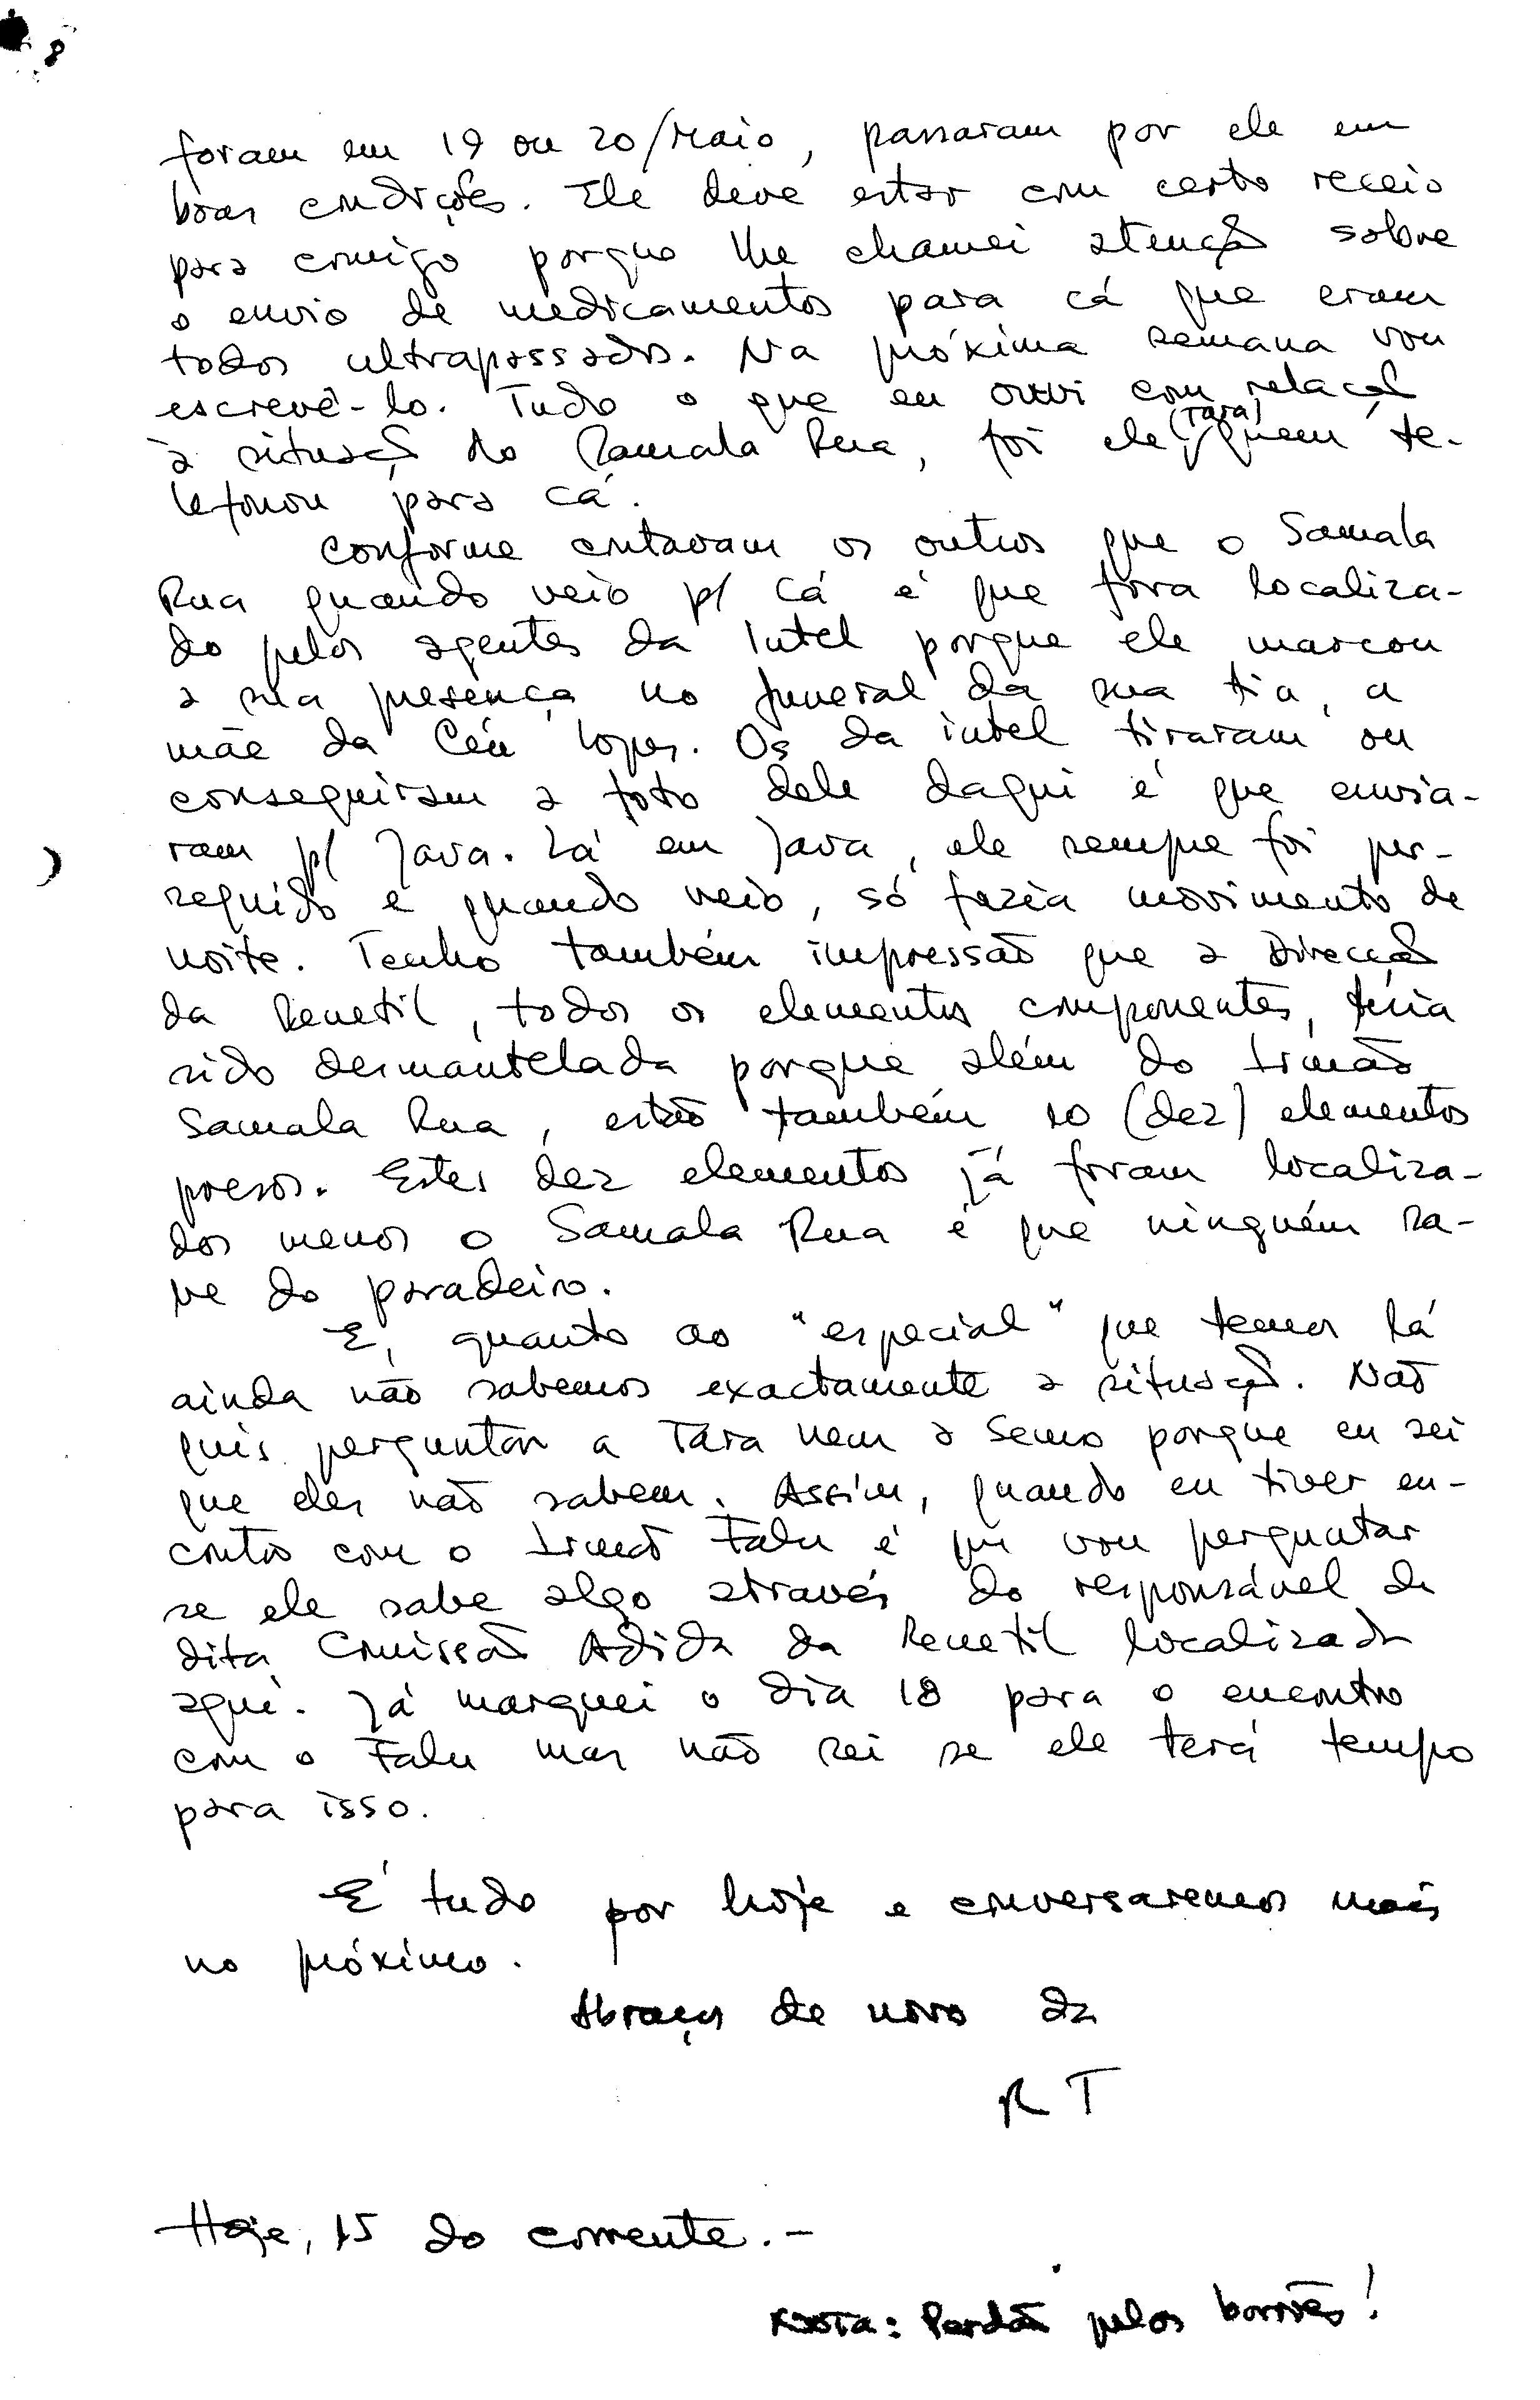 8
foram em 19 ou 20/Maio, passaram por ele em
boas condições. Ele deve estar com certo receio
para comigo porque lhe chamei atenção sobre
o envio de medicamentos para cá que eram
todos ultrapassados. Na próxima semana vou
escrevê-lo. Tudo o que eu ouvi com relação
à situação do Samala Rua, foi ele (Tara) quem te-
lefonou para cá.
Conforme contavam os outros que o Samala
Rua quando veio p/ cá é que fora localiza-
do pelos agentes da Intel porque ele marcou
a sua presença no funeral da sua tia, a
mãe da Céu Lopes. Os da intel tiraram ou
conseguiram a foto dele daqui é que envia-
ram p/ Java. Lá em Java, ele sempre foi per-
seguido e quando veio, só fazia movimento de
noite. Tenho também impressão que a Direcção
da Renetil, todos os elementos componentes, teria
sido desmantelada porque além do Irmão
Samala Rua, estão também 10 (dez) elementos
presos. Estes dez elementos já foram localiza-
dos menos o Samala Rua é que ninguém sa-
be do paradeiro.
E, quanto ao "especial" que temos lá
ainda não sabemos exactamente a situação. Não
quis perguntar a Tara nem a Semo porque eu sei
que eles não sabem. Assim, quando eu tiver en-
contro com o Irmão Falu é que vou perguntar
se ele sabe algo através do responsável da
dita Comissão Adida da Renetil localizada
aqui. Já marquei o dia 18 para o encontro
com o Falu mas não sei se ele terá tempo
para isso.
É tudo por hoje e conversaremos mais
no próximo.
Abraços de novo da
R T
Hoje, 15 do corrente.-
Nota: Perdão pelos borrões!